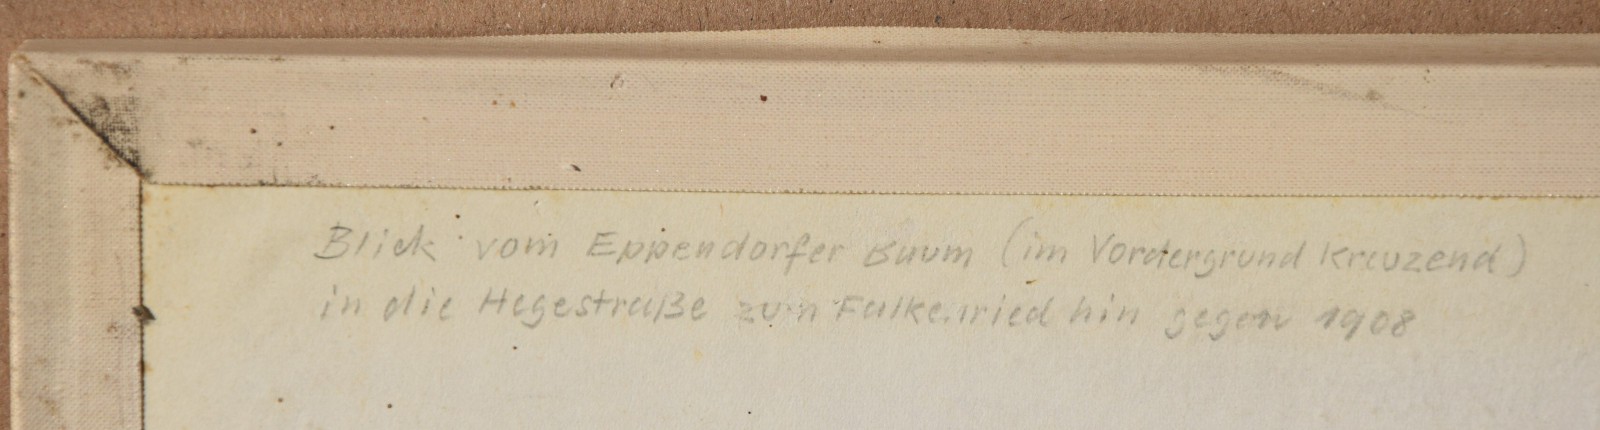 Blick vom Eppendorfer Baum (im Vordergrund kreuzend)
in die Hegestraße zum Falkenried hin gegen 1908